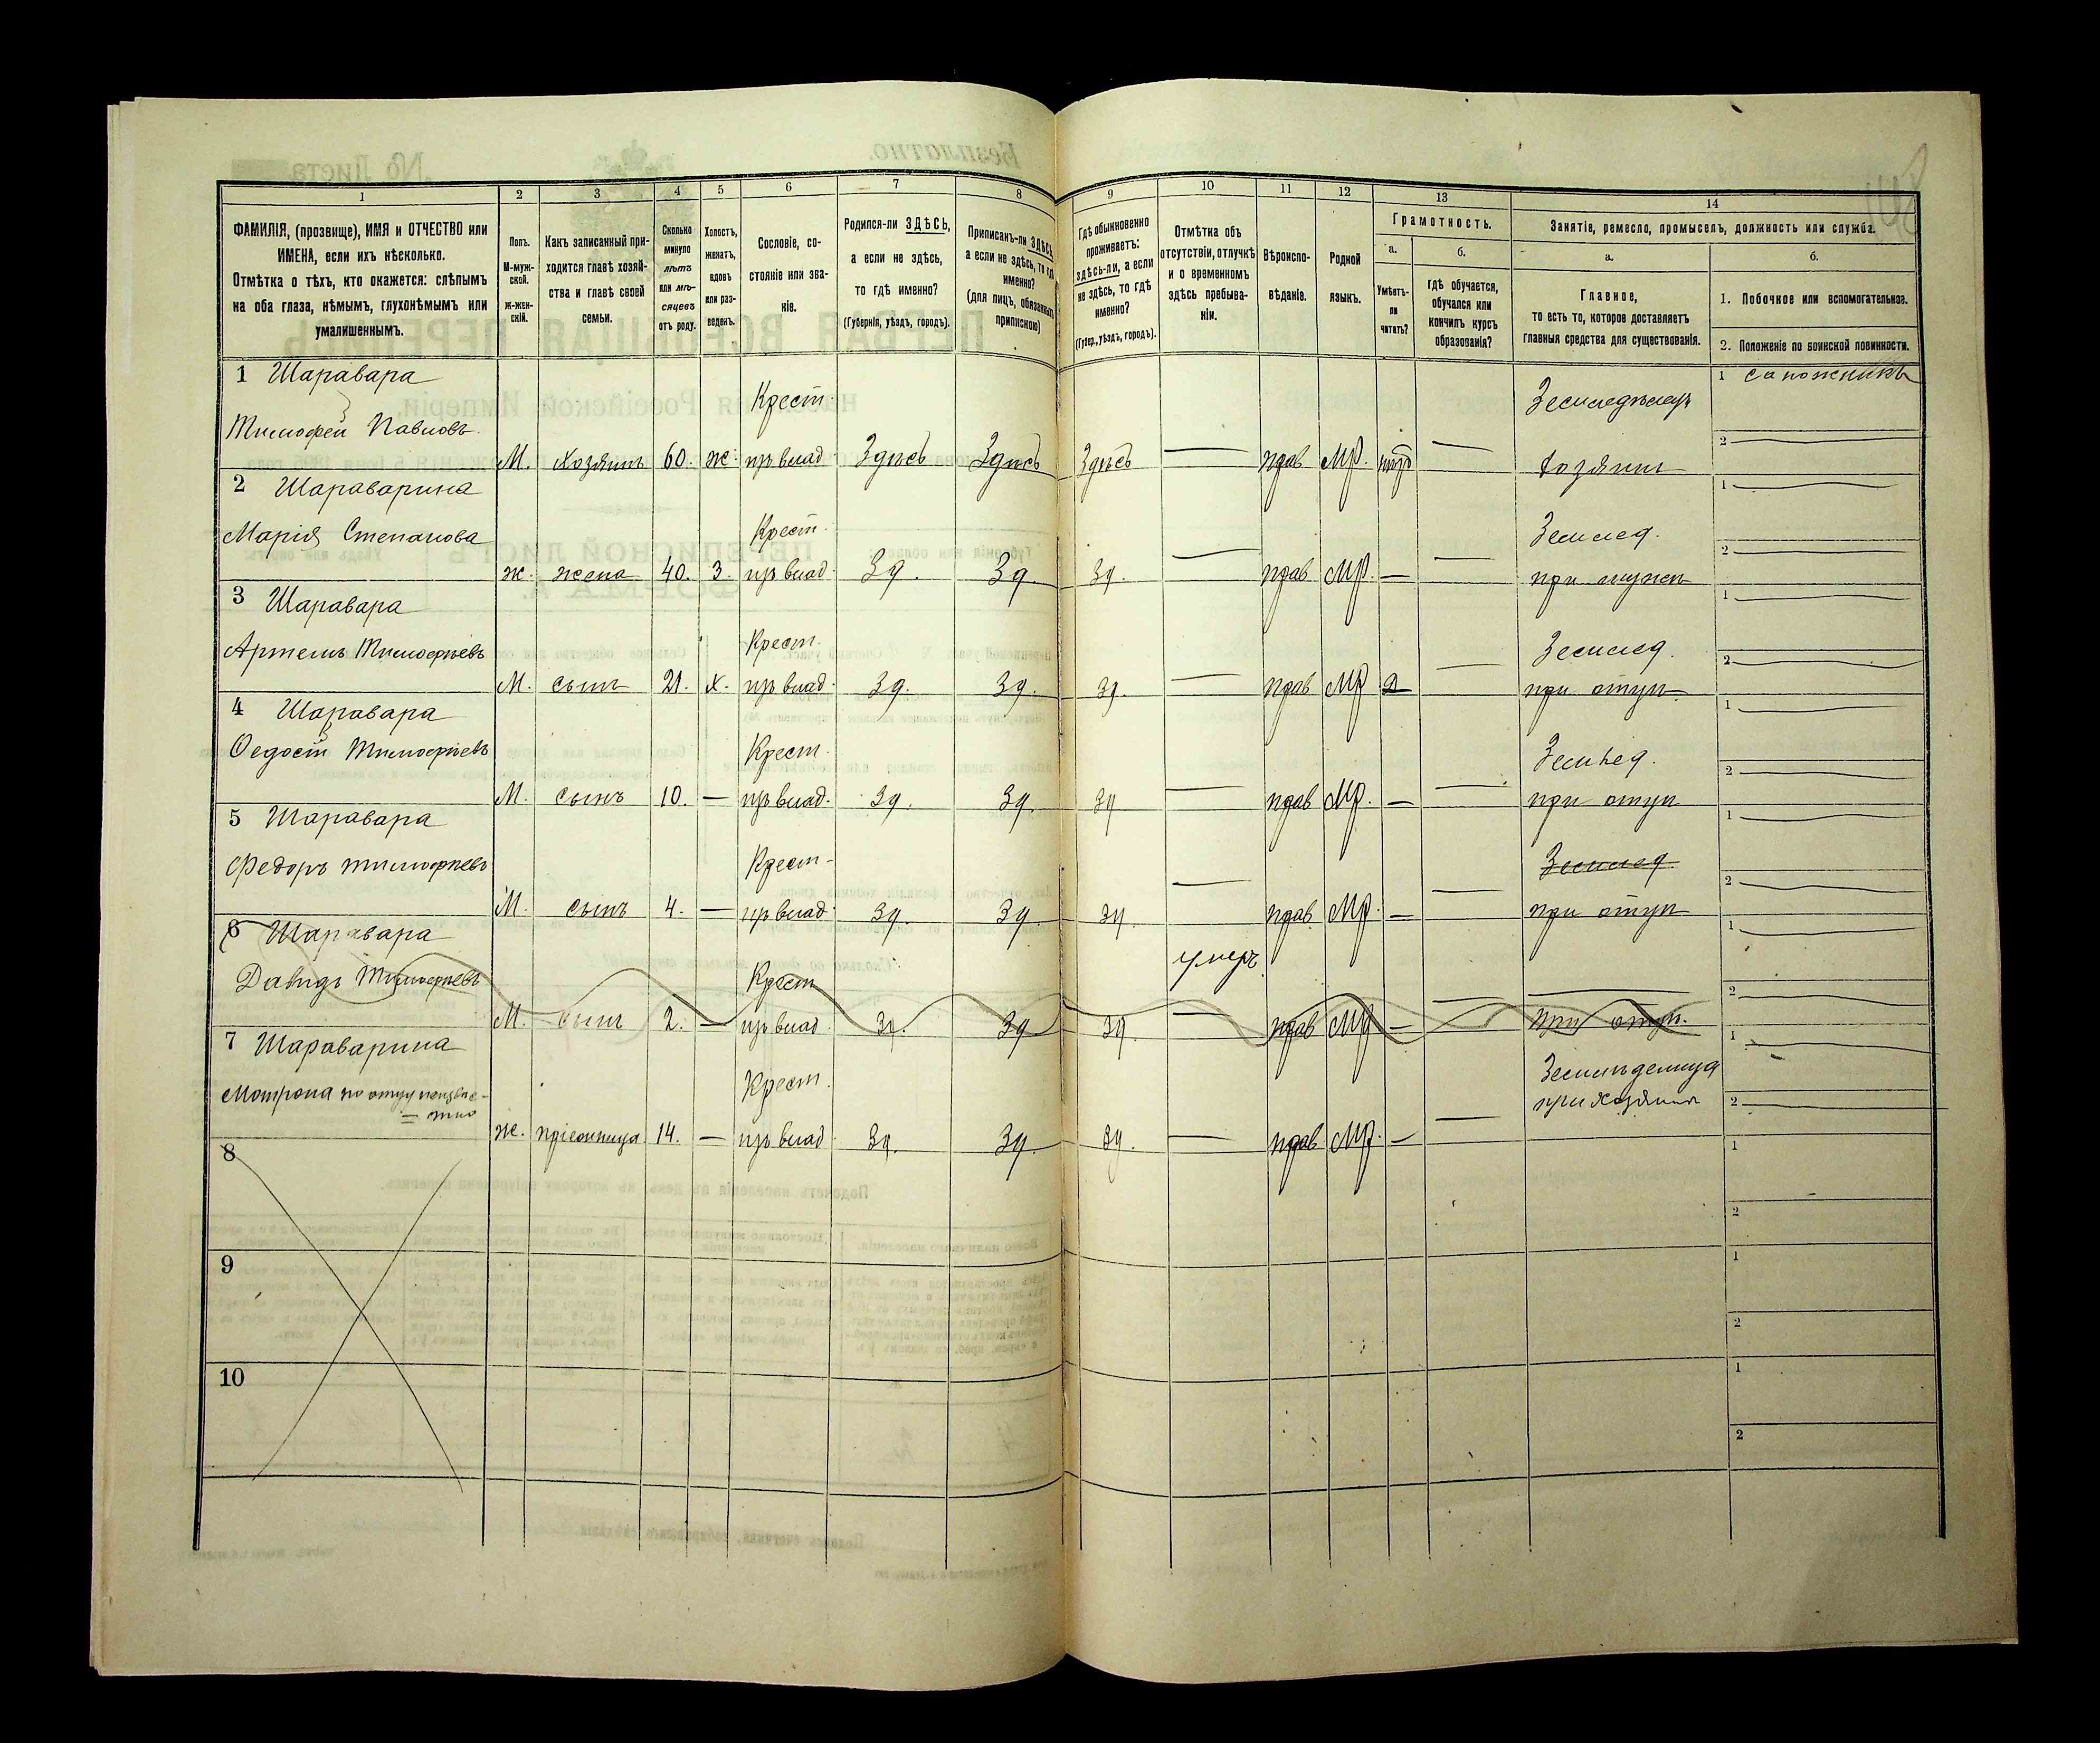 1 2 3 4 5 6 7 8 9 10 11 12 13 14
ФАМИЛІЯ, (прозвище), ИМЯ и ОТЧЕСТВО или
ИМЕНА, если ихъ нѣсколько.
Отмѣтка о тѣхъ, кто окажется: слѣпымъ
на оба глаза, нѣмымъ, глухонѣмымъ или
умалишеннымъ.
Полъ.
М-муж-
ской.
ж-жен-
скій.
Какъ записанный при-
ходится главѣ хозяй-
ства и главѣ своей
семьи.
Сколько
минуло
лѣтъ
или мѣ-
сяцевъ
отъ роду.
Холостъ,
женатъ,
вдовъ
или раз-
веденъ.
Сословіе, со-
стояніе или зва-
ніе.
Родился-ли ЗДѢСЬ,
а если не здѣсь,
то гдѣ именно?
(Губернія, уѣздъ, городъ).
Приписанъ-ли ЗДѢСЬ,
а если не здѣсь, то гдѣ
именно?
(для лицъ, обязанныхъ
припискою)
Гдѣ обыкновенно
проживаетъ:
здѣсь-ли, а если
не здѣсь, то гдѣ
именно?
(Губер., уѣздъ, городъ).
Отмѣтка объ
отсутствіи, отлучкѣ
и о временномъ
здѣсь пребыва-
ніи.
Вѣроиспо-
вѣданіе.
Родной
языкъ.
Грамотность.
а.
Умѣетъ-
ли
читать?
б.
гдѣ обучается,
обучался или
кончилъ курсъ
образованія?
Занятіе, ремесло, промыселъ, должность или служба.
а.
Главное,
то есть то, которое доставляетъ
главныя средства для существованія.
б.
1. Побочное или вспомогательное.
2. Положеніе по воинской повинности.
1 Шаравара
Тимофей Павловъ
М. хозяинъ 60. ж.
Крест.
пр влад
Здѣсь Здѣсь Здѣсь — прав мр. нѣтъ —
Земледѣлец
хозяин
1 сапожникъ
2
2 Шараварина
Марія Степанова
ж. жена 40. З.
Крест.
пр влад
Зд. Зд. Зд. — прав мр. — —
Землед.
при мужѣ
1
2
3 Шаравара
Артемъ Тимофѣевъ
М. сынъ 21. х.
Крест.
пр влад
Зд. Зд. Зд. — прав мр —
Землед.
при отцѣ
1
2
4 Шаравара
Ѳедост Тимофѣевъ
М. сынъ 10. —
Крест.
пр влад.
Зд. Зд. Зд — прав мр. — —
Землед.
при отцѣ
1
2
5 Шаравара
Федоръ тимофѣевъ
М. сынъ 4. —
Крест-
пр влад
Зд. Зд. Зд. — прав мр. — —
Землед
при отцѣ
1
2
6 Шаравара
Давидъ Тимофѣевъ
М. сынъ 2. —
Крест
пр влад.
Зд. Зд Зд.
умеръ.
— прав мр — —
при отцѣ.
1
2
7 Шараварина
Мотрона по отцу неизвѣс-
= тно
ж. пріемница 14. —
Крест.
пр влад
Зд. Зд. Зд. — прав мр. — —
Земледѣлица
при хозяинѣ
1
2
8
1
2
9
1
2
10
1
2